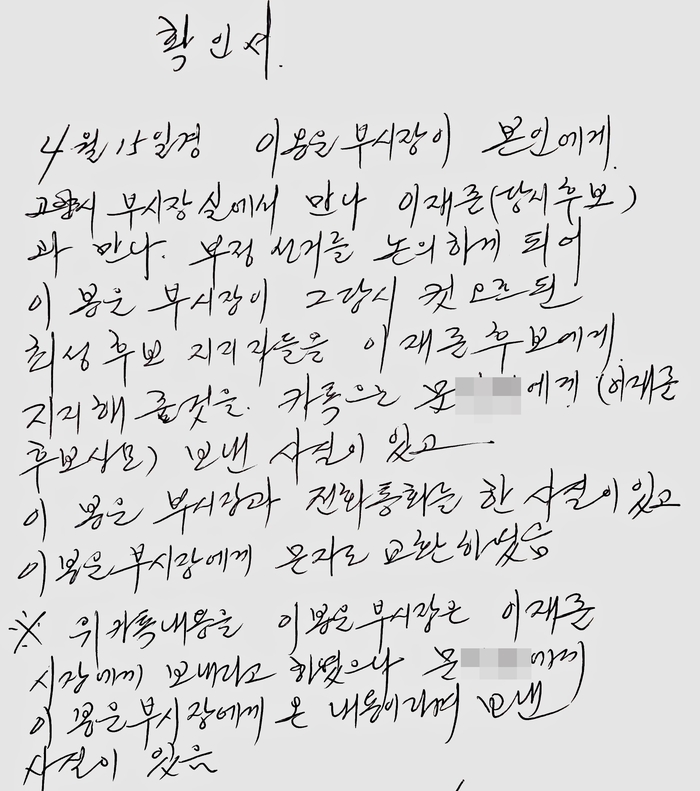 확인서.
4월 15일경 이봉운 부시장이 본인에게.
고양시 부시장실에서 만나 이재준(당시후보)
과 만나. 부정선거를 논의하게 되어
이봉운 부시장이 그당시 컷오프된
최성후보 지지자들을 이재준후보에게
지지해 줄것을. 카톡으로 문 에게 (이재준
후보상모) 보낸 사실이 있고
이봉운 부시장과 전화통화를 한 사실이 있고
이봉운부시장에게 문자로 교환하였음
※ 위카톡내용을 이봉운부시장은 이재준
시장에게 보내라고 하였으나 문 에게
이봉운부시장에게 온 내용이라며 보낸
사실이 있음